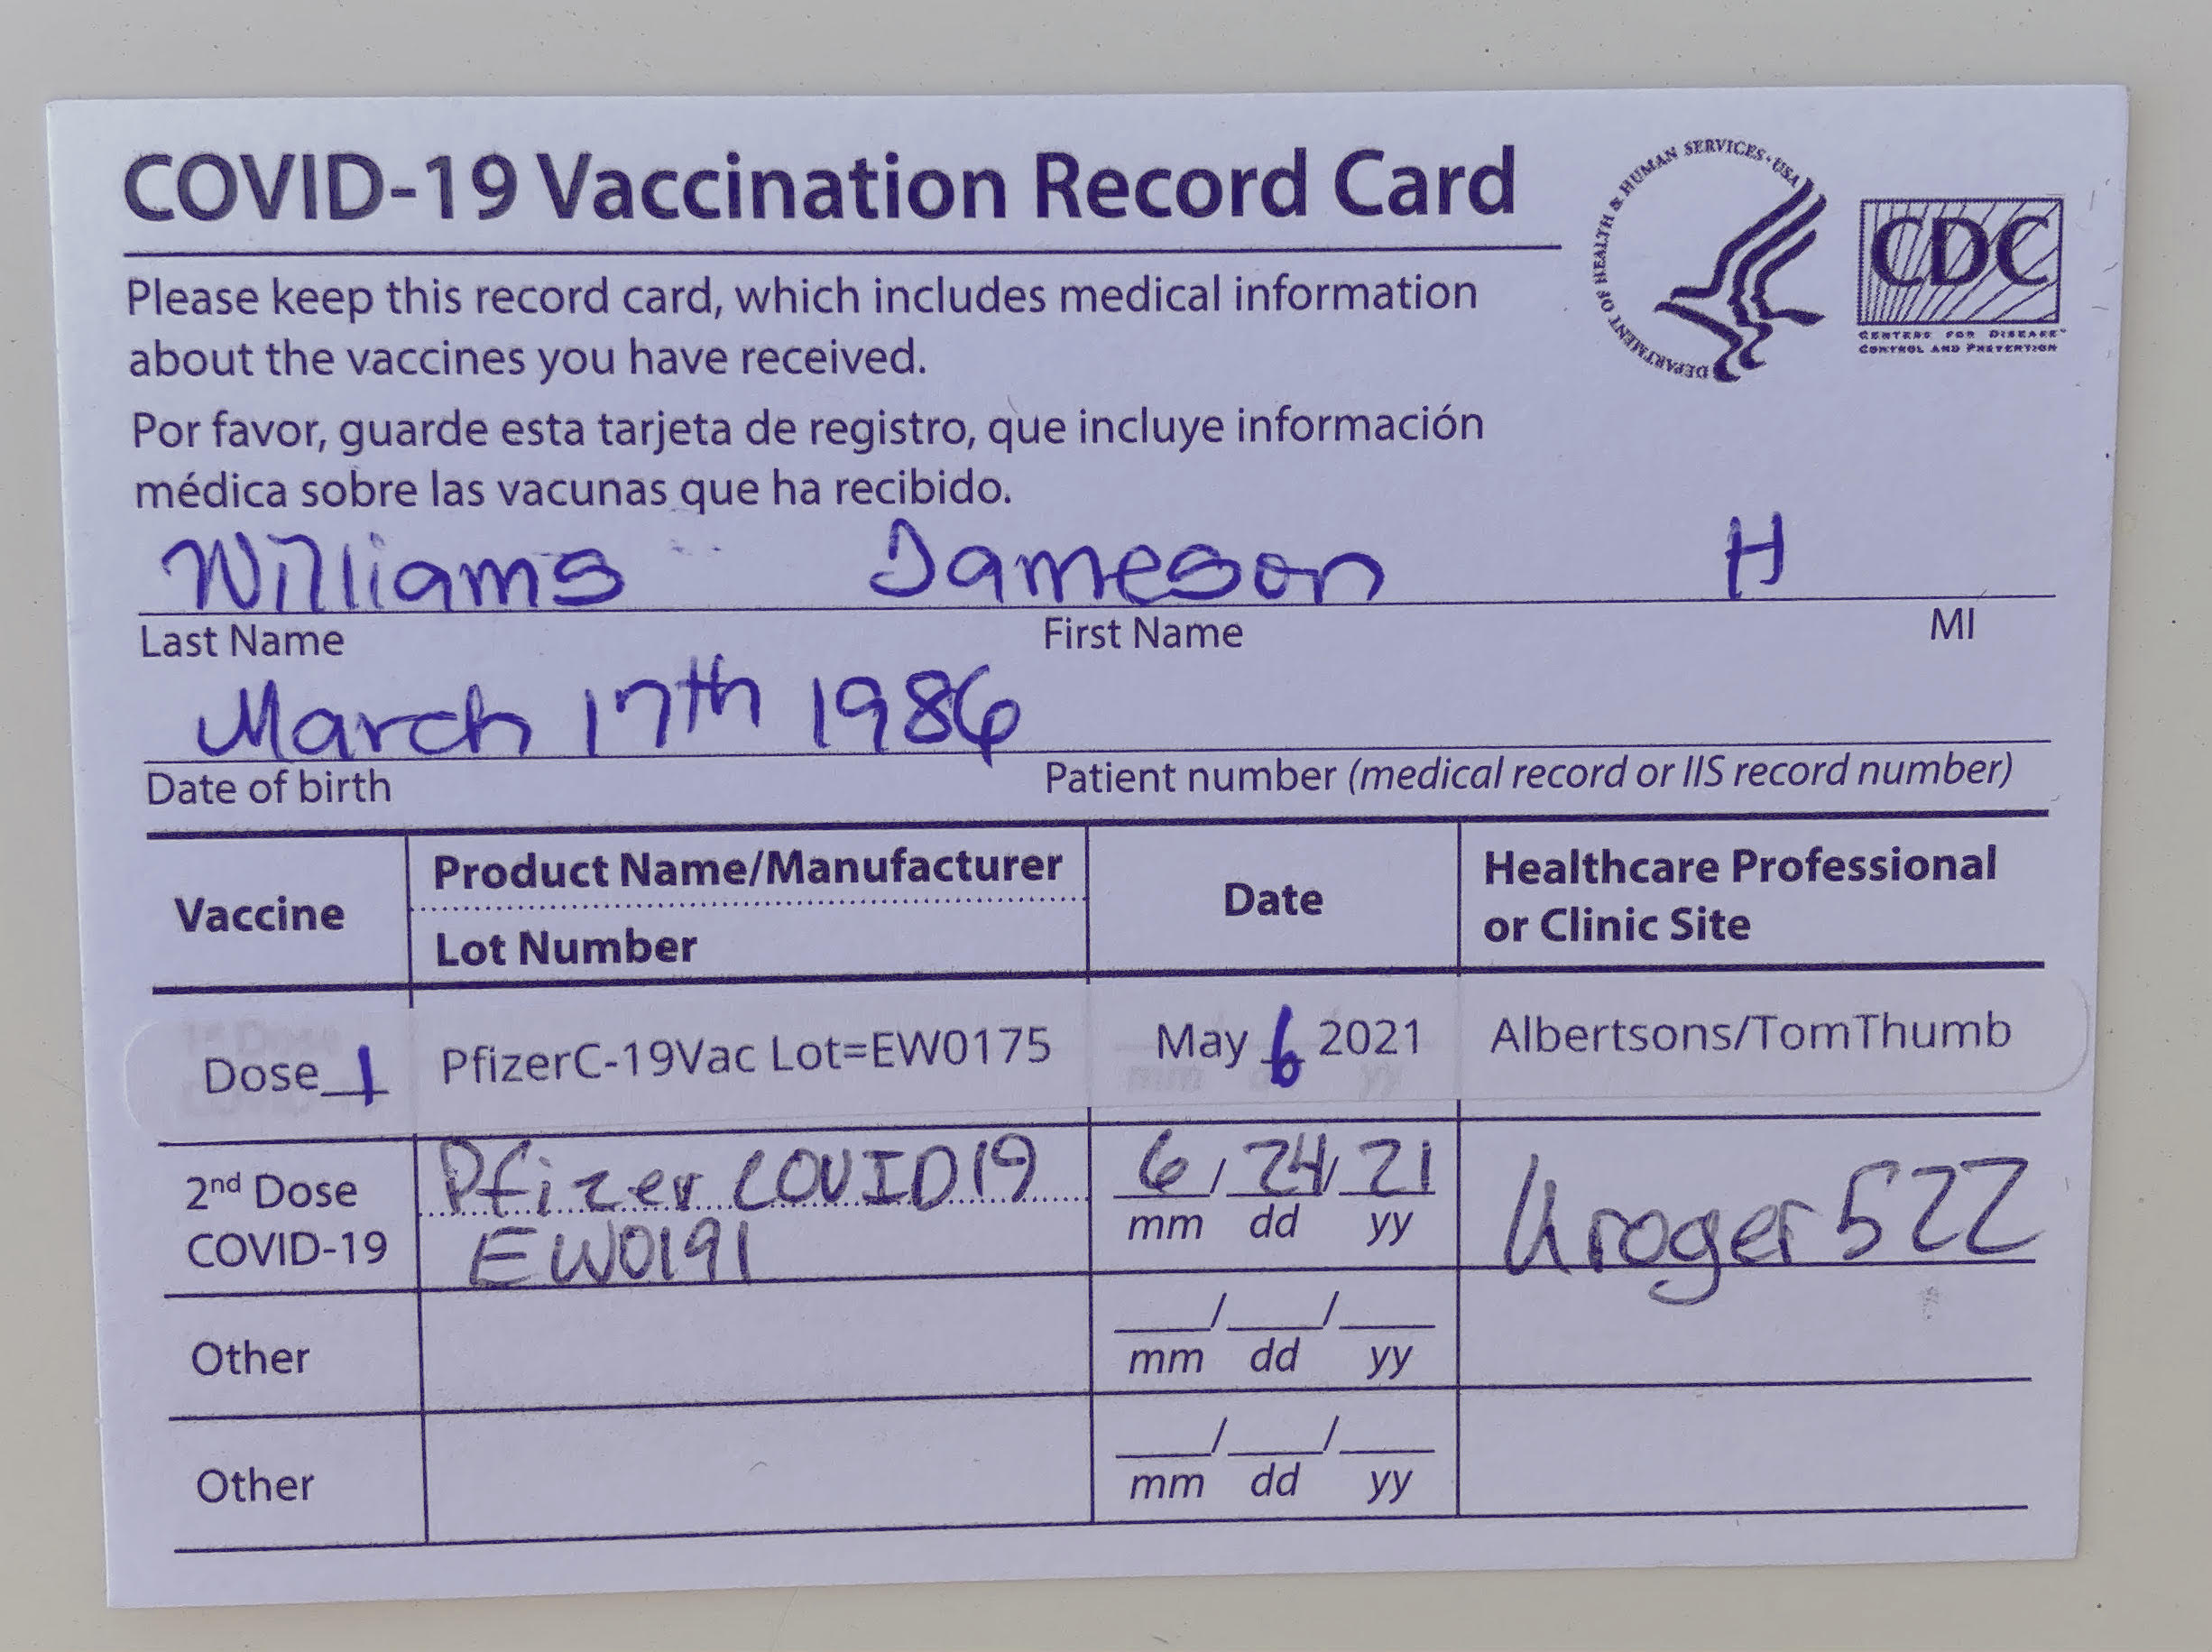 COVID-19 Vaccination Record Card
DEPARTMENT OF HEALTH & HUMAN SERVICES • USA
CDC
CENTERS FOR DISEASE™
CONTROL AND PREVENTION
Please keep this record card, which includes medical information
about the vaccines you have received.
Por favor, guarde esta tarjeta de registro, que incluye información
médica sobre las vacunas que ha recibido.
Williams Jameson H
Last Name First Name MI
March 17th 1986
Date of birth Patient number (medical record or IIS record number)
Vaccine Product Name/Manufacturer Date Healthcare Professional
Lot Number or Clinic Site
Dose 1 PfizerC-19Vac Lot=EW0175 May 6 2021 Albertsons/TomThumb
2nd Dose Pfizer COVID19 6/24/21 Kroger 522
COVID-19 EW0191 mm dd yy
Other / /
mm dd yy
Other / /
mm dd yy